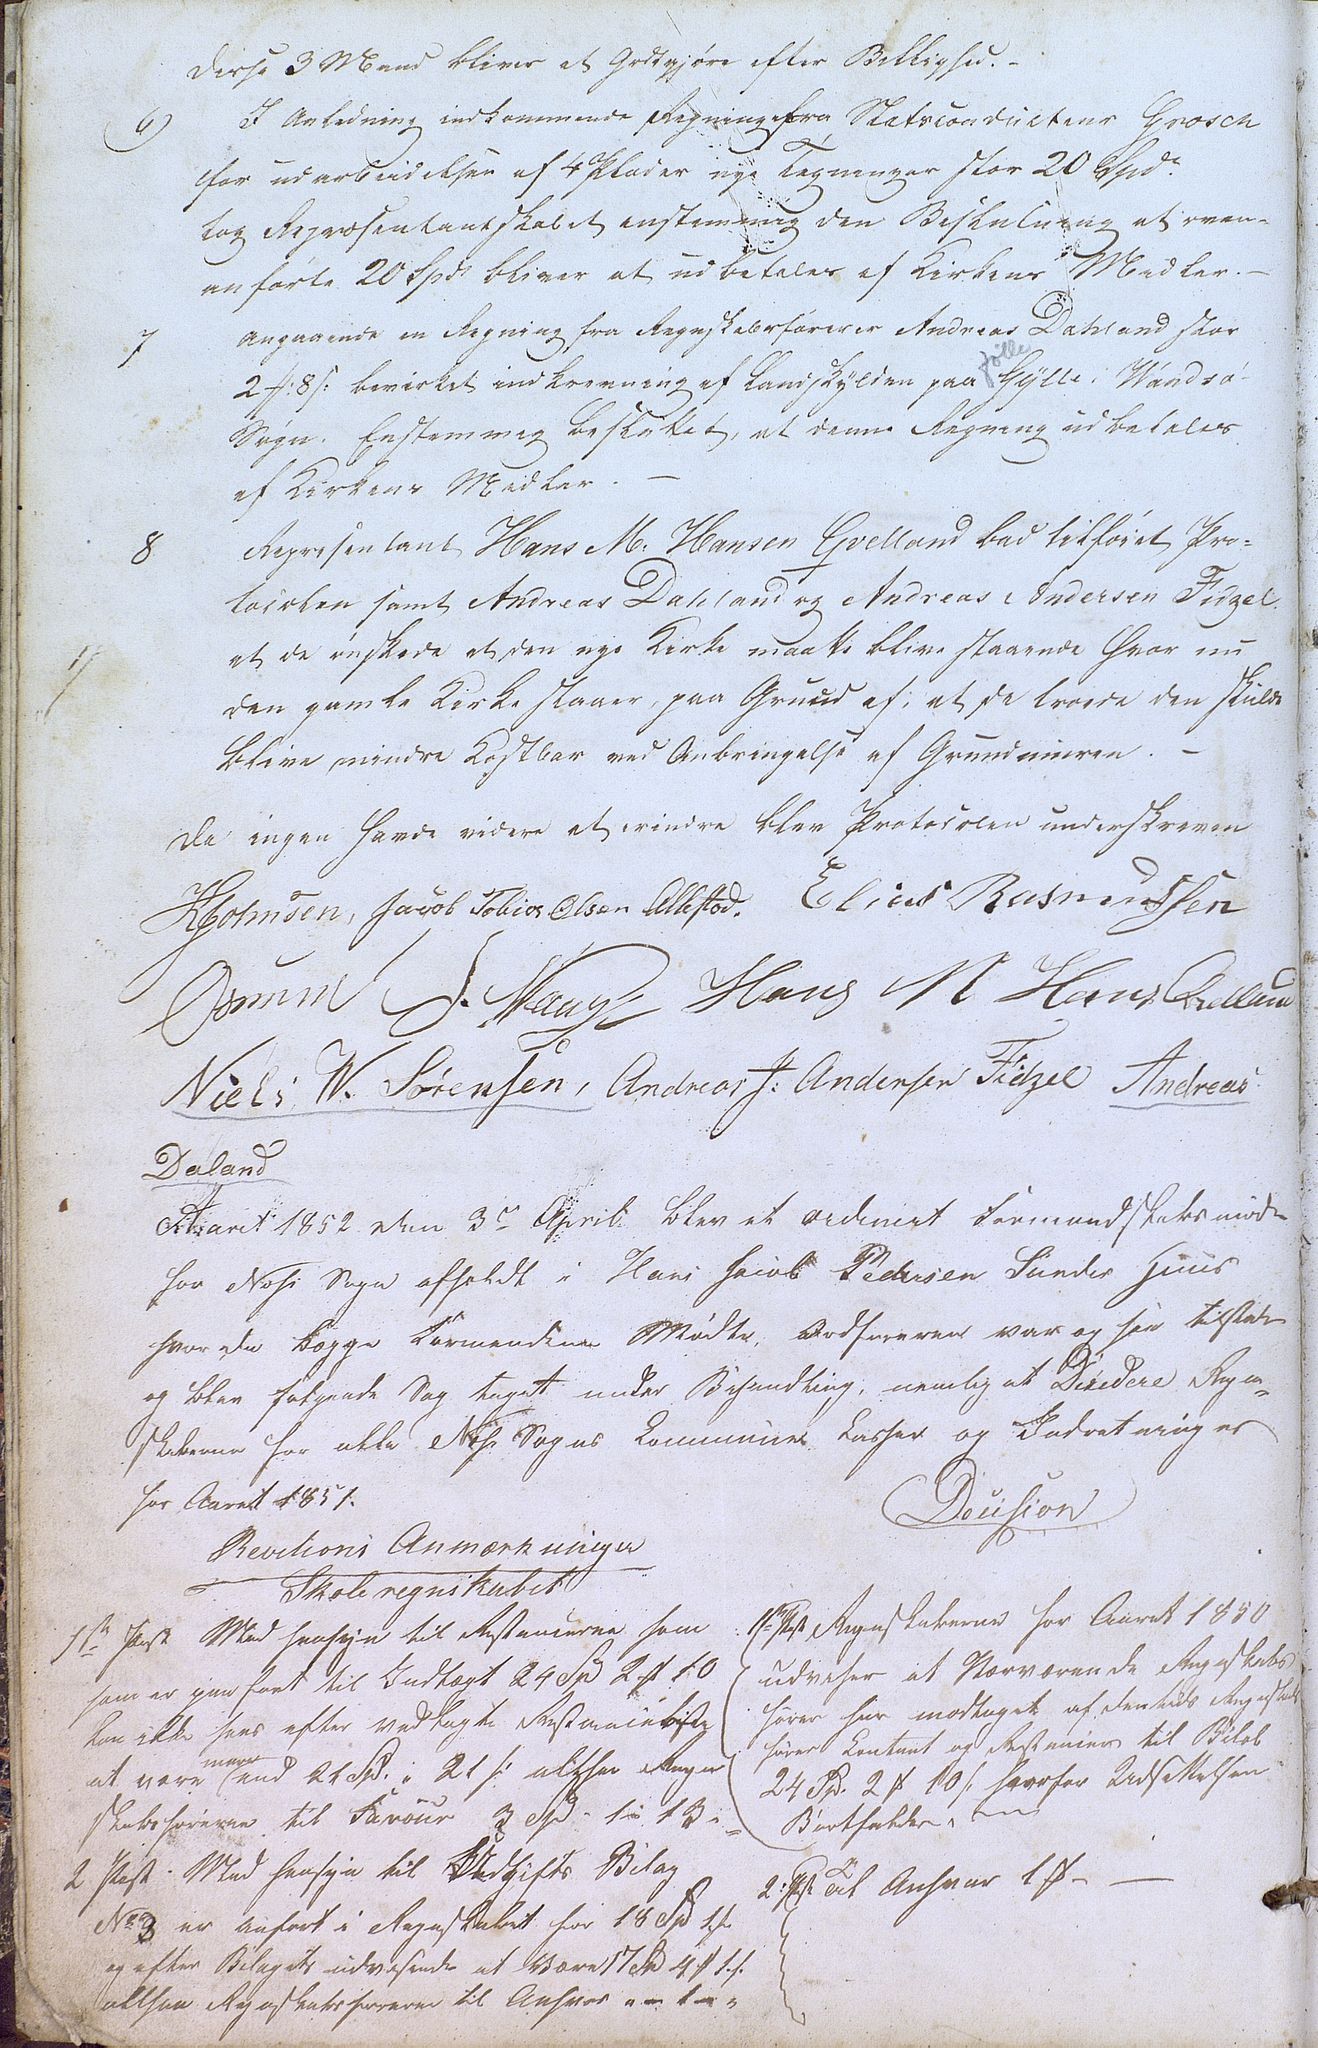 disse 3 Mænd bliver at Godtgjøre efter Billighed. -
6) I Anledning indkommende Regning fra Statsconducteur Grosch
for udarbeidelsen af 4 Plader nye Tegninger stor 20 Spd.
tog Repræsentantskabet enstemmig den Beslutning at oven-
anførte 20 Spd bliver at udbetales af Kirkens Midler. -
7 Angaaende en Regning fra Regnskabsfører Andreas Dahland stor
Jølle
2 ƒ: 8 s: bevirket indkrevning af Landskylden paa Gylle i Wandsø-
Sogn. Enstemmig besluttet, at denne Regning udbetales
af Kirkens Midler. -
8 Representant Hans M. Hansen Qvelland bad tilføiet Pro-
tocolen samt Andreas Dahland og Andreas Andersen Fidzel.
at de ønskede at den nye Kirke maatte blive staaende hvor nu
den gamle Kirke staaer, paa Grund af, at de troede den skulde
blive mindre Kostbar ved Anbringelse af Grundmuren. -
Da ingen havde videre at erindre blev Protocolen underskreven
Johnsen, Jacob Tobias Olsen Allestad. Elias Rasmussen
J. Haaŋe Hans M Hans Qvellan
Niels W. Sørensen, Andreas J: Andersen Fidzel Andreas
Daland
Aaret 1852 den 3die April blev et ordinert Formandskabs møde
for Næss Sogn afholdt i Hans Jacob Pedersen Sundes Huus
hvor de begge Formændene Mødte, Ordføreren var og saa tilstede
og blev følgende Sag taget under Behandling, nemlig at Decidere Regn-
skaberne for alle Næss Sogns Communer Casser og Indretninger
for Aaret 1851.
Decision
Revitions Anmærkninger
Skoleregnskabet
1ste Post Med hensyn til Restancerne som
som er paaført til Indtægt 24 Spd 2 ƒ 10
kan ikke sees efter vedlagte Restanceliste
mere
at være end 21 Spd. 21 s: altsaa Regn
skabsføreren til Favour 3 Spd - 1 - 13 -
2 Post - Med hensyn til Udgifts Bilag
No 3 er anført i Regnskabet for 18 Spd 1 s.
og efter Bilagets udvisende at være 17 Spd 4 ƒ 1 s.
altsaa Regnskabsføreren til Ansvar " - 1 - "
1ste Post Regnskaberne for Aaret 1850
udviser at Nærværende Regnskabs
fører har modtaget af den tids Regnskabs
fører Contant og Restancer til Beløb
24 Spd. 2 ƒ 10 s. hvorfor Udsettelsen
Bortfalder.
2: Post Til Ansvar 1 ƒ - -